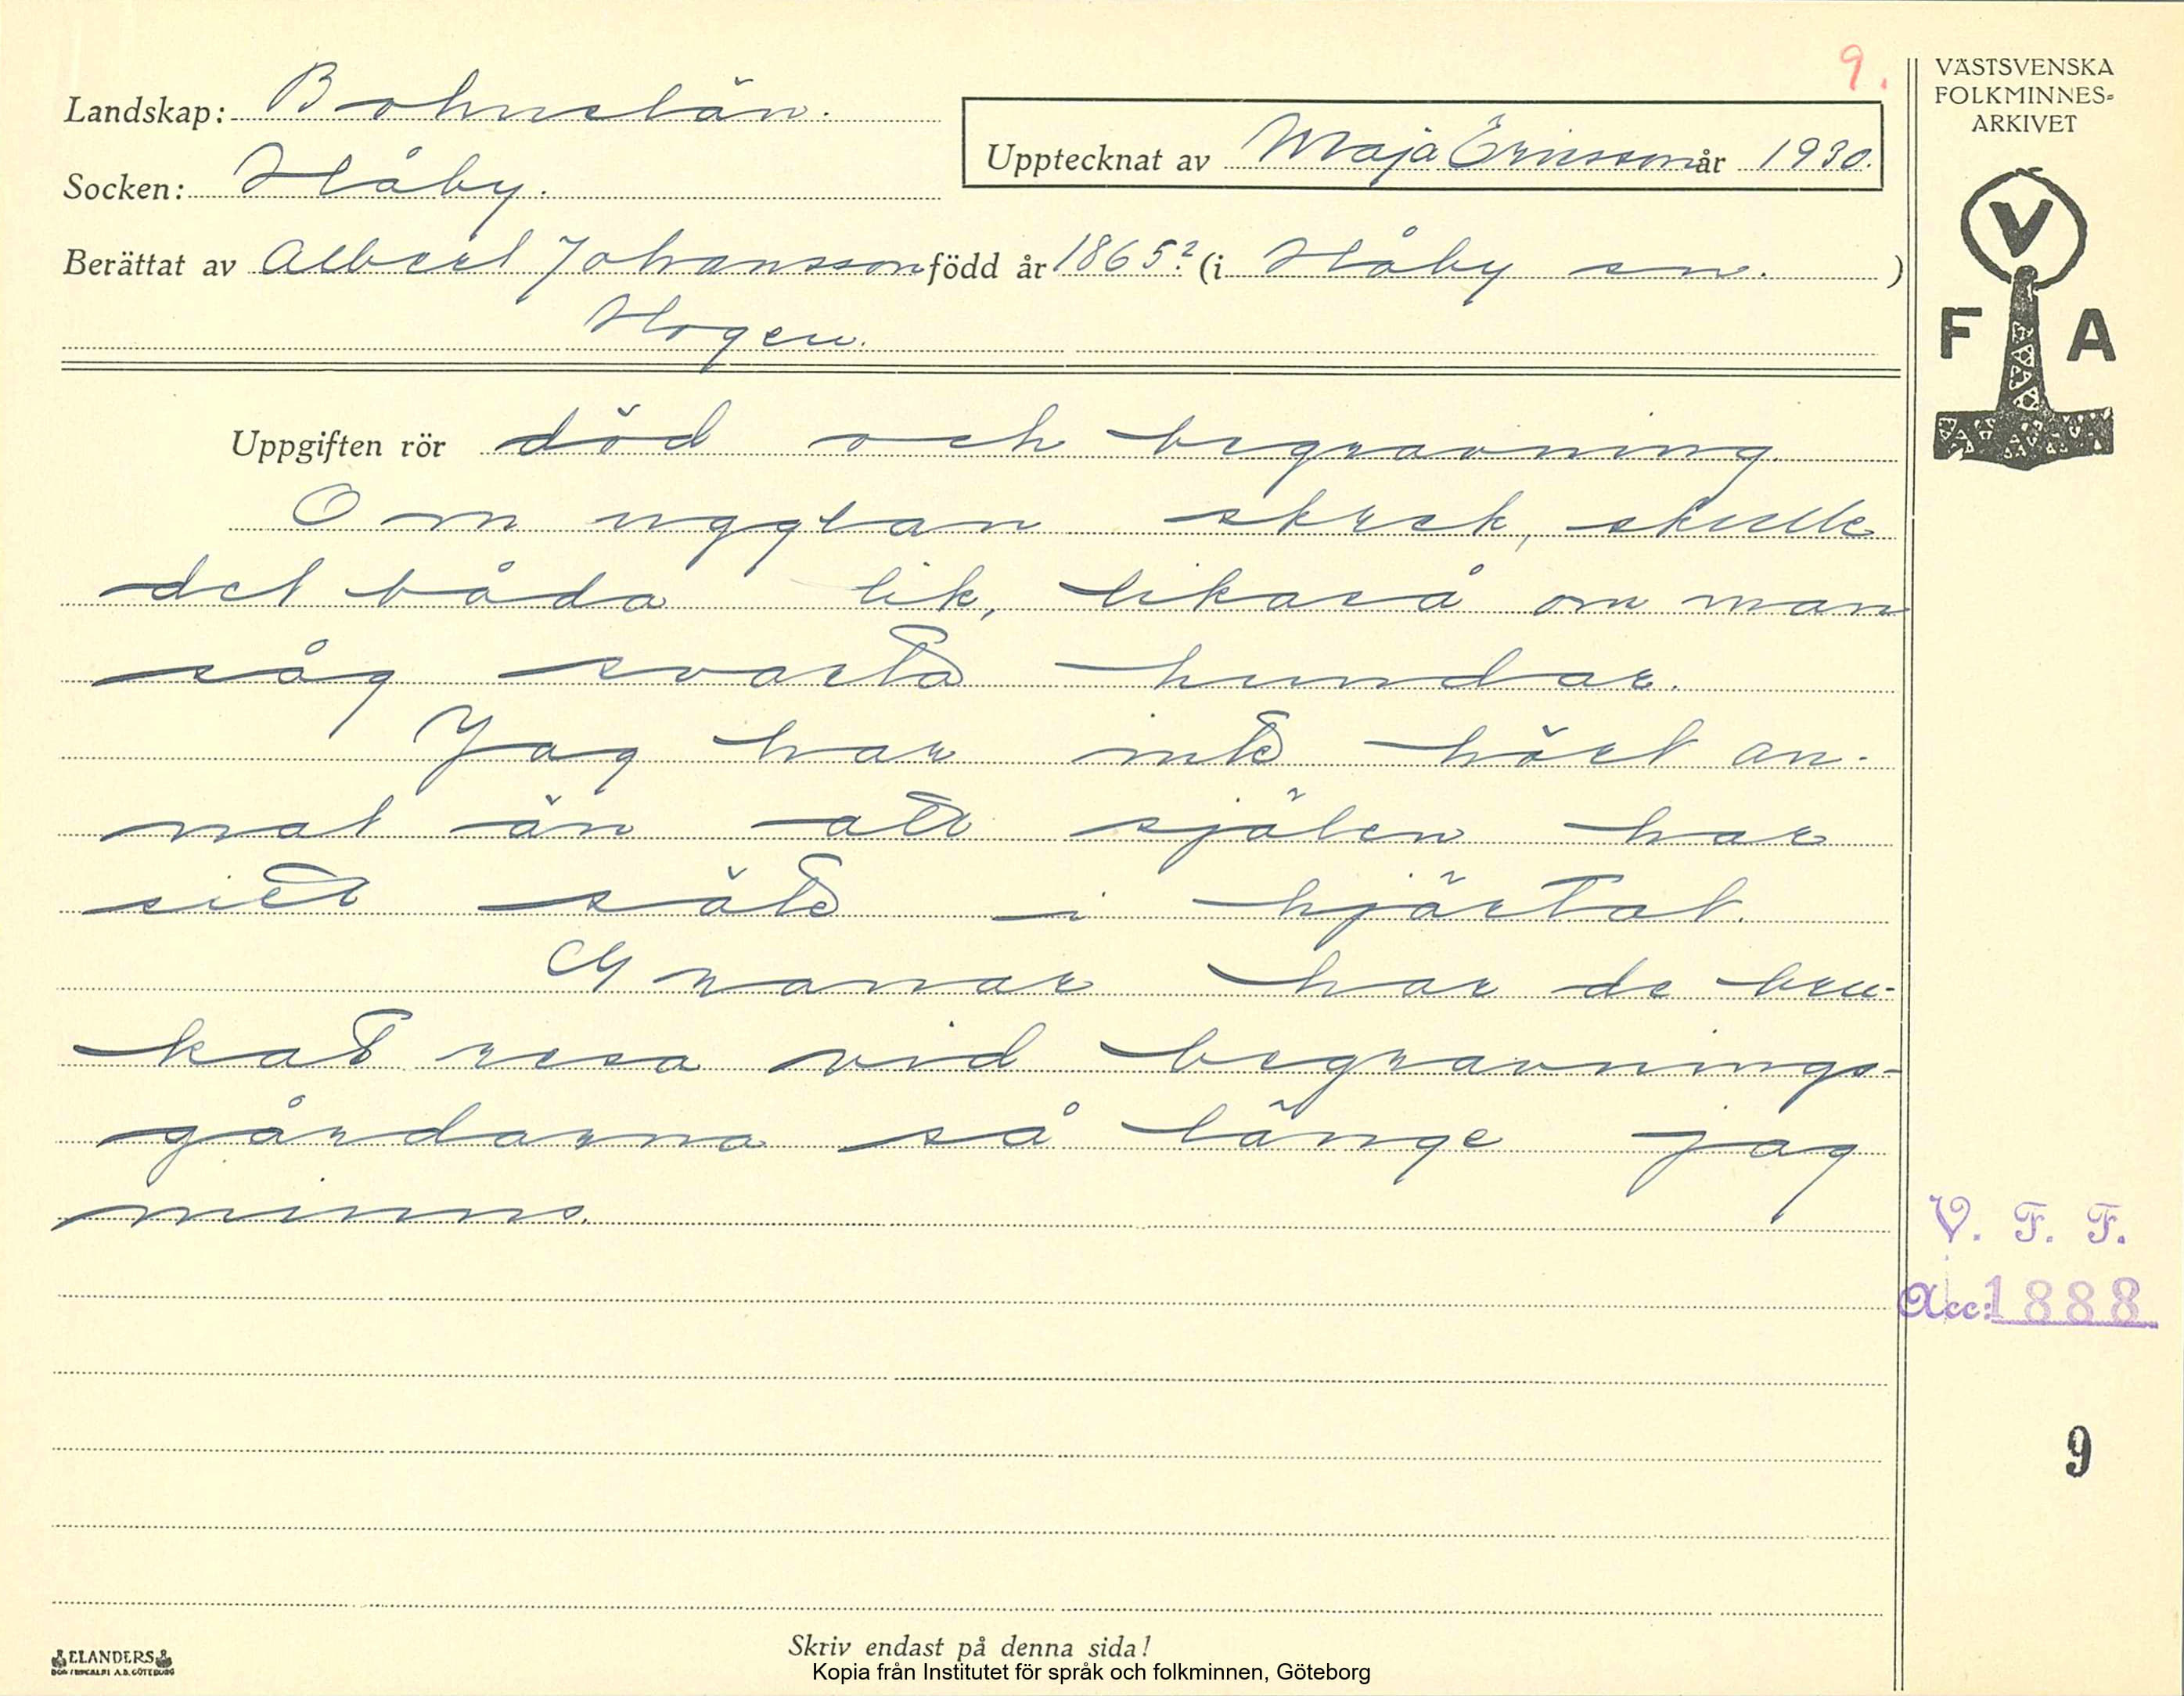 9.
VÄSTSVENSKA
FOLKMINNES-
ARKIVET
Landskap: Bohuslän.
Upptecknat av Maja Ericsson år 1930.
Socken: Håby.
Berättat av Albert Johansson född år 1865? (i Håby sn. )
Hogen.
V
F A
Uppgiften rör död och begravning.
Om ugglan skrek, skulle
det båda lik, likaså om man
såg svarta hundar.
Jag har inte hört an-
nat än att själen har
sitt säte i hjärtat.
Granar har de bru-
kat resa vid begravnings-
gårdarna så länge jag
minns.
V. F. F.
Acc: 1888
9
Skriv endast på denna sida!
ELANDERS
Kopia från Institutet för språk och folkminnen, Göteborg